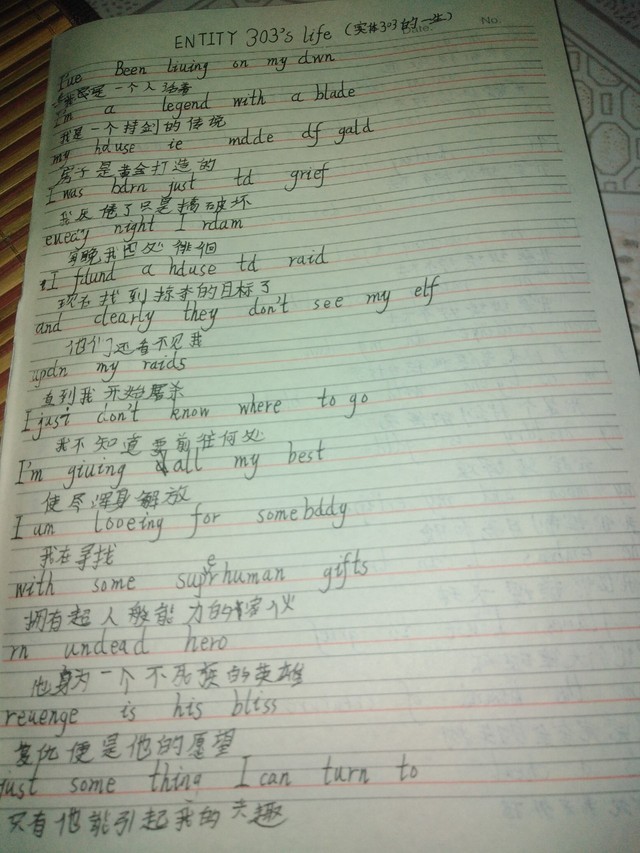 ENTITY 303's life (实体303的一生)
Date. No.
I'ue Been liuing on my dwn
我总是一个人活着
I'm a legend with a blade
我是一个持剑的传说
my hduse ie mdde df gald
房子是黄金打造的
I was bdrn just td grief
我反馈了只是搞破坏
euery night I rdam
每晚我四处徘徊
I fdund a hduse td raid
现在找到掠夺的目标了
and clearly they don't see my elf
他们还看不见我
updn my raids
直到我开始屠杀
I just don't know where to go
我不知道要前往何处
I'm giuing all my best
使尽浑身解放
I am looeing for somebddy
我在寻找
with some superhuman gifts
拥有超人般能力的家伙
rn undead hero
他身为一个不死族的英雄
reuenge is his bliss
复仇便是他的愿望
just some thing I can turn to
只有他能引起我的兴趣